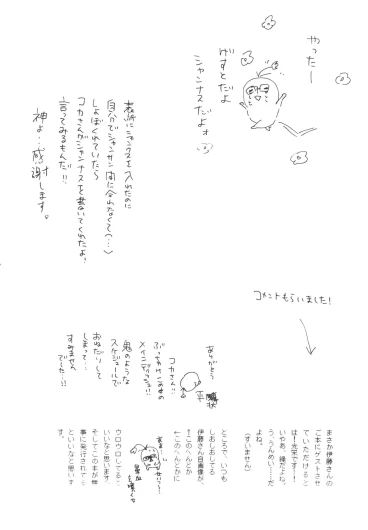 やったー
げすとだよ
シャンナスだよォ
表紙にニャンクスを入れたのに
自分でシャンサン間に合わなくて(´…｀)
しょぼくれていたら
コカさんがシャンナスを書いてくれたよ!
言ってみるもんだ!!
神よ…感謝します。
コメントもらいました!
ありがとう
コカさん!!
ぶっちゃけいみの
メインディッシュ!!
鬼のような
スケジュールで
おねだりして
しまって…
すみません
でした…!!
まさか伊藤さんの
ご本にゲストさせ
ていただけると
は!光栄です…!
いやあ、縁だよね。
う、うんめい…だ
よね。
(すいません)
ところで、いつも
しおしおしてる
伊藤さん自画像が、
←このへんとかに
←このへんとかに
ウロウロしてると
いいなと思います。
そしてこの本が無
事に発行されてる
といいなと思いま
す。